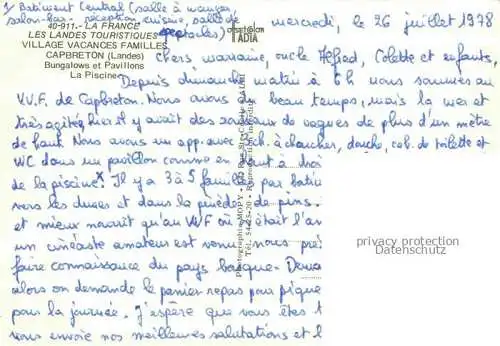 1/ Bâtiment Central (salle à manger,
salon-bar, réception, cuisine, salle de
spectacles)
mercredi, le 26 juillet 1978
40-911. - LA FRANCE
LES LANDES TOURISTIQUES
VILLAGE VACANCES FAMILLES
CAPBRETON (Landes)
Bungalows et Pavillons
La Piscine
Chers, marraine, oncle Alfred, Colette et enfants,
Depuis dimanche matin à 6h nous sommes au
V.V.F. de Capbreton. Nous avons du beau temps, mais la mer est
très agitée, hier il y avait des rouleaux de vagues de plus d'un mètre
de haut. Nous avons un app. avec 2 ch. à coucher, douche, cab. de toilette et
WC dans un pavillon comme en haut à
de la piscine. Il y a 3 à 5 familles par
vers les dunes et dans la pinède de pins.
et mieux nourrit qu'au VVF où c'était l'an
un cinéaste amateur est venu nous
faire connaissance du pays basque.
alors on demande le panier repas pour
pour la journée. J'espère que vous êtes
vous envoie nos meilleures salutations et
Photographie MODY
Reproduction interdite
privacy protection
Datenschutz